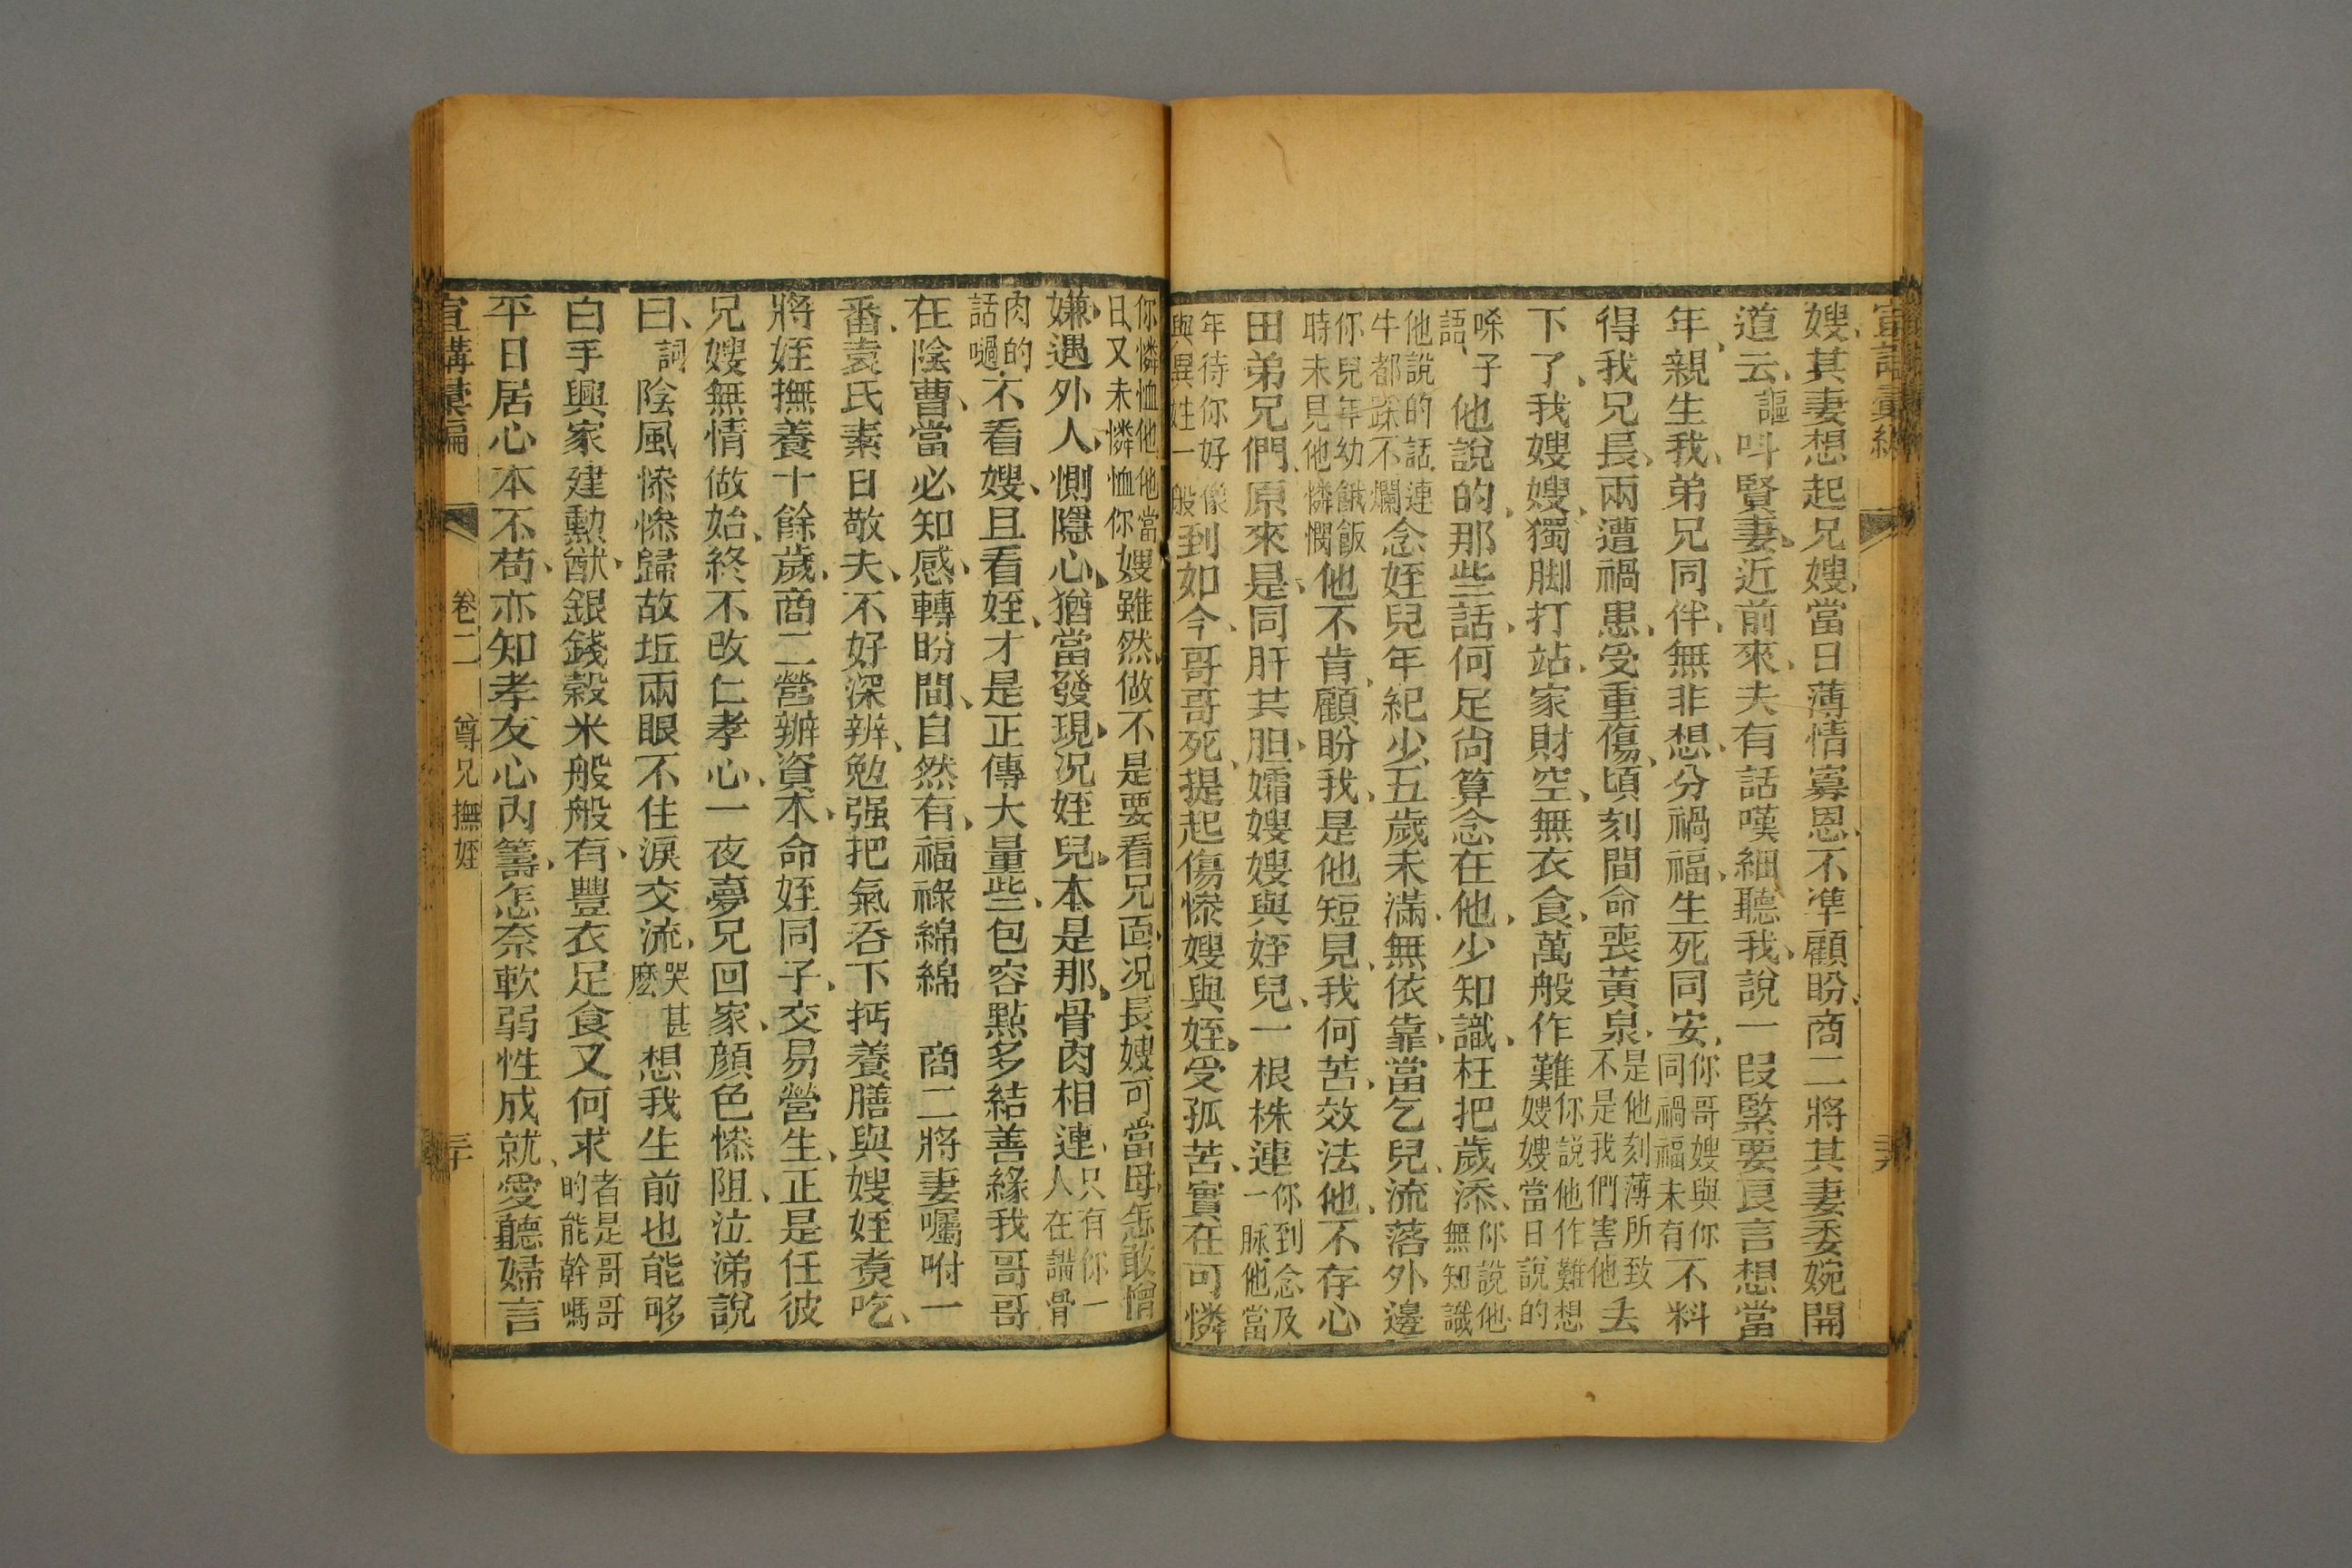 宣講彙編
嫂、其妻想起兄嫂、當日薄情寡恩、不準顧盼、商二將其妻委婉開
道云、謳呌賢妻、近前來、夫有話嘆、細聽我、說一段緊要良言想當
年、親生我、弟兄同伴、無非想、分禍福、生死同安、你哥嫂與你同禍福未有不料
得我兄長、兩遭禍患、受重傷、頃刻間命喪黃泉、是他刻薄所致不是我們害他丢
下了、我嫂嫂、獨脚打站、家財空、無衣食、萬般作難你說他作難想嫂嫂當日說的
啄子語、他說的、那些話、何足尙算念在他、少知識、枉把歲添、你說他無知識
他說的話、連牛都踩不爛念姪兒年紀少、五歲未滿、無依靠、當乞兒、流落外邊
你兒年幼餓飯時未見他憐憫他不肯、顧盼我、是他短見、我何苦、效法他、不存心
田弟兄們、原來是、同肝共胆、孀嫂嫂與姪兒、一根株連你到念及一脉、他當
年待你好像與異姓一般到如今、哥哥死、提起傷慘嫂與姪、受孤苦、實在可憐
你憐恤他他當日又未憐恤你嫂雖然、做不是要看兄面、况長嫂可當母、怎敢憎
嫌、遇外人、惻隱心、猶當發現、况姪兒、本是那、骨肉相連、只有你一人在講骨
肉的話嘓、不看嫂、且看姪、才是正傳大量些、包容點多結善緣我哥哥
在陰曹、當必知感、轉盼間、自然有、福祿綿綿　商二將妻囑咐一
番、袁氏素日敬夫、不好深辨、勉强把氣吞下抅養膳與嫂姪煑吃、
將姪撫養十餘歲、商二營辦資本、命姪同子、交易營生、正是任彼
兄嫂無情做始、終不改仁孝心、一夜夢兄回家、顔色慘阻、泣涕說
曰、詞陰風慘慘歸故坵兩眼不住淚交流、哭甚麽想我生前也能够
白手興家建勳猷、銀錢穀米般般有、豐衣足食又何求者是哥哥的能幹嗎
平日居心本不苟、亦知孝友心內籌、怎奈軟弱性成就、愛聽婦言
宣講彙編　卷二　尊兄撫姪